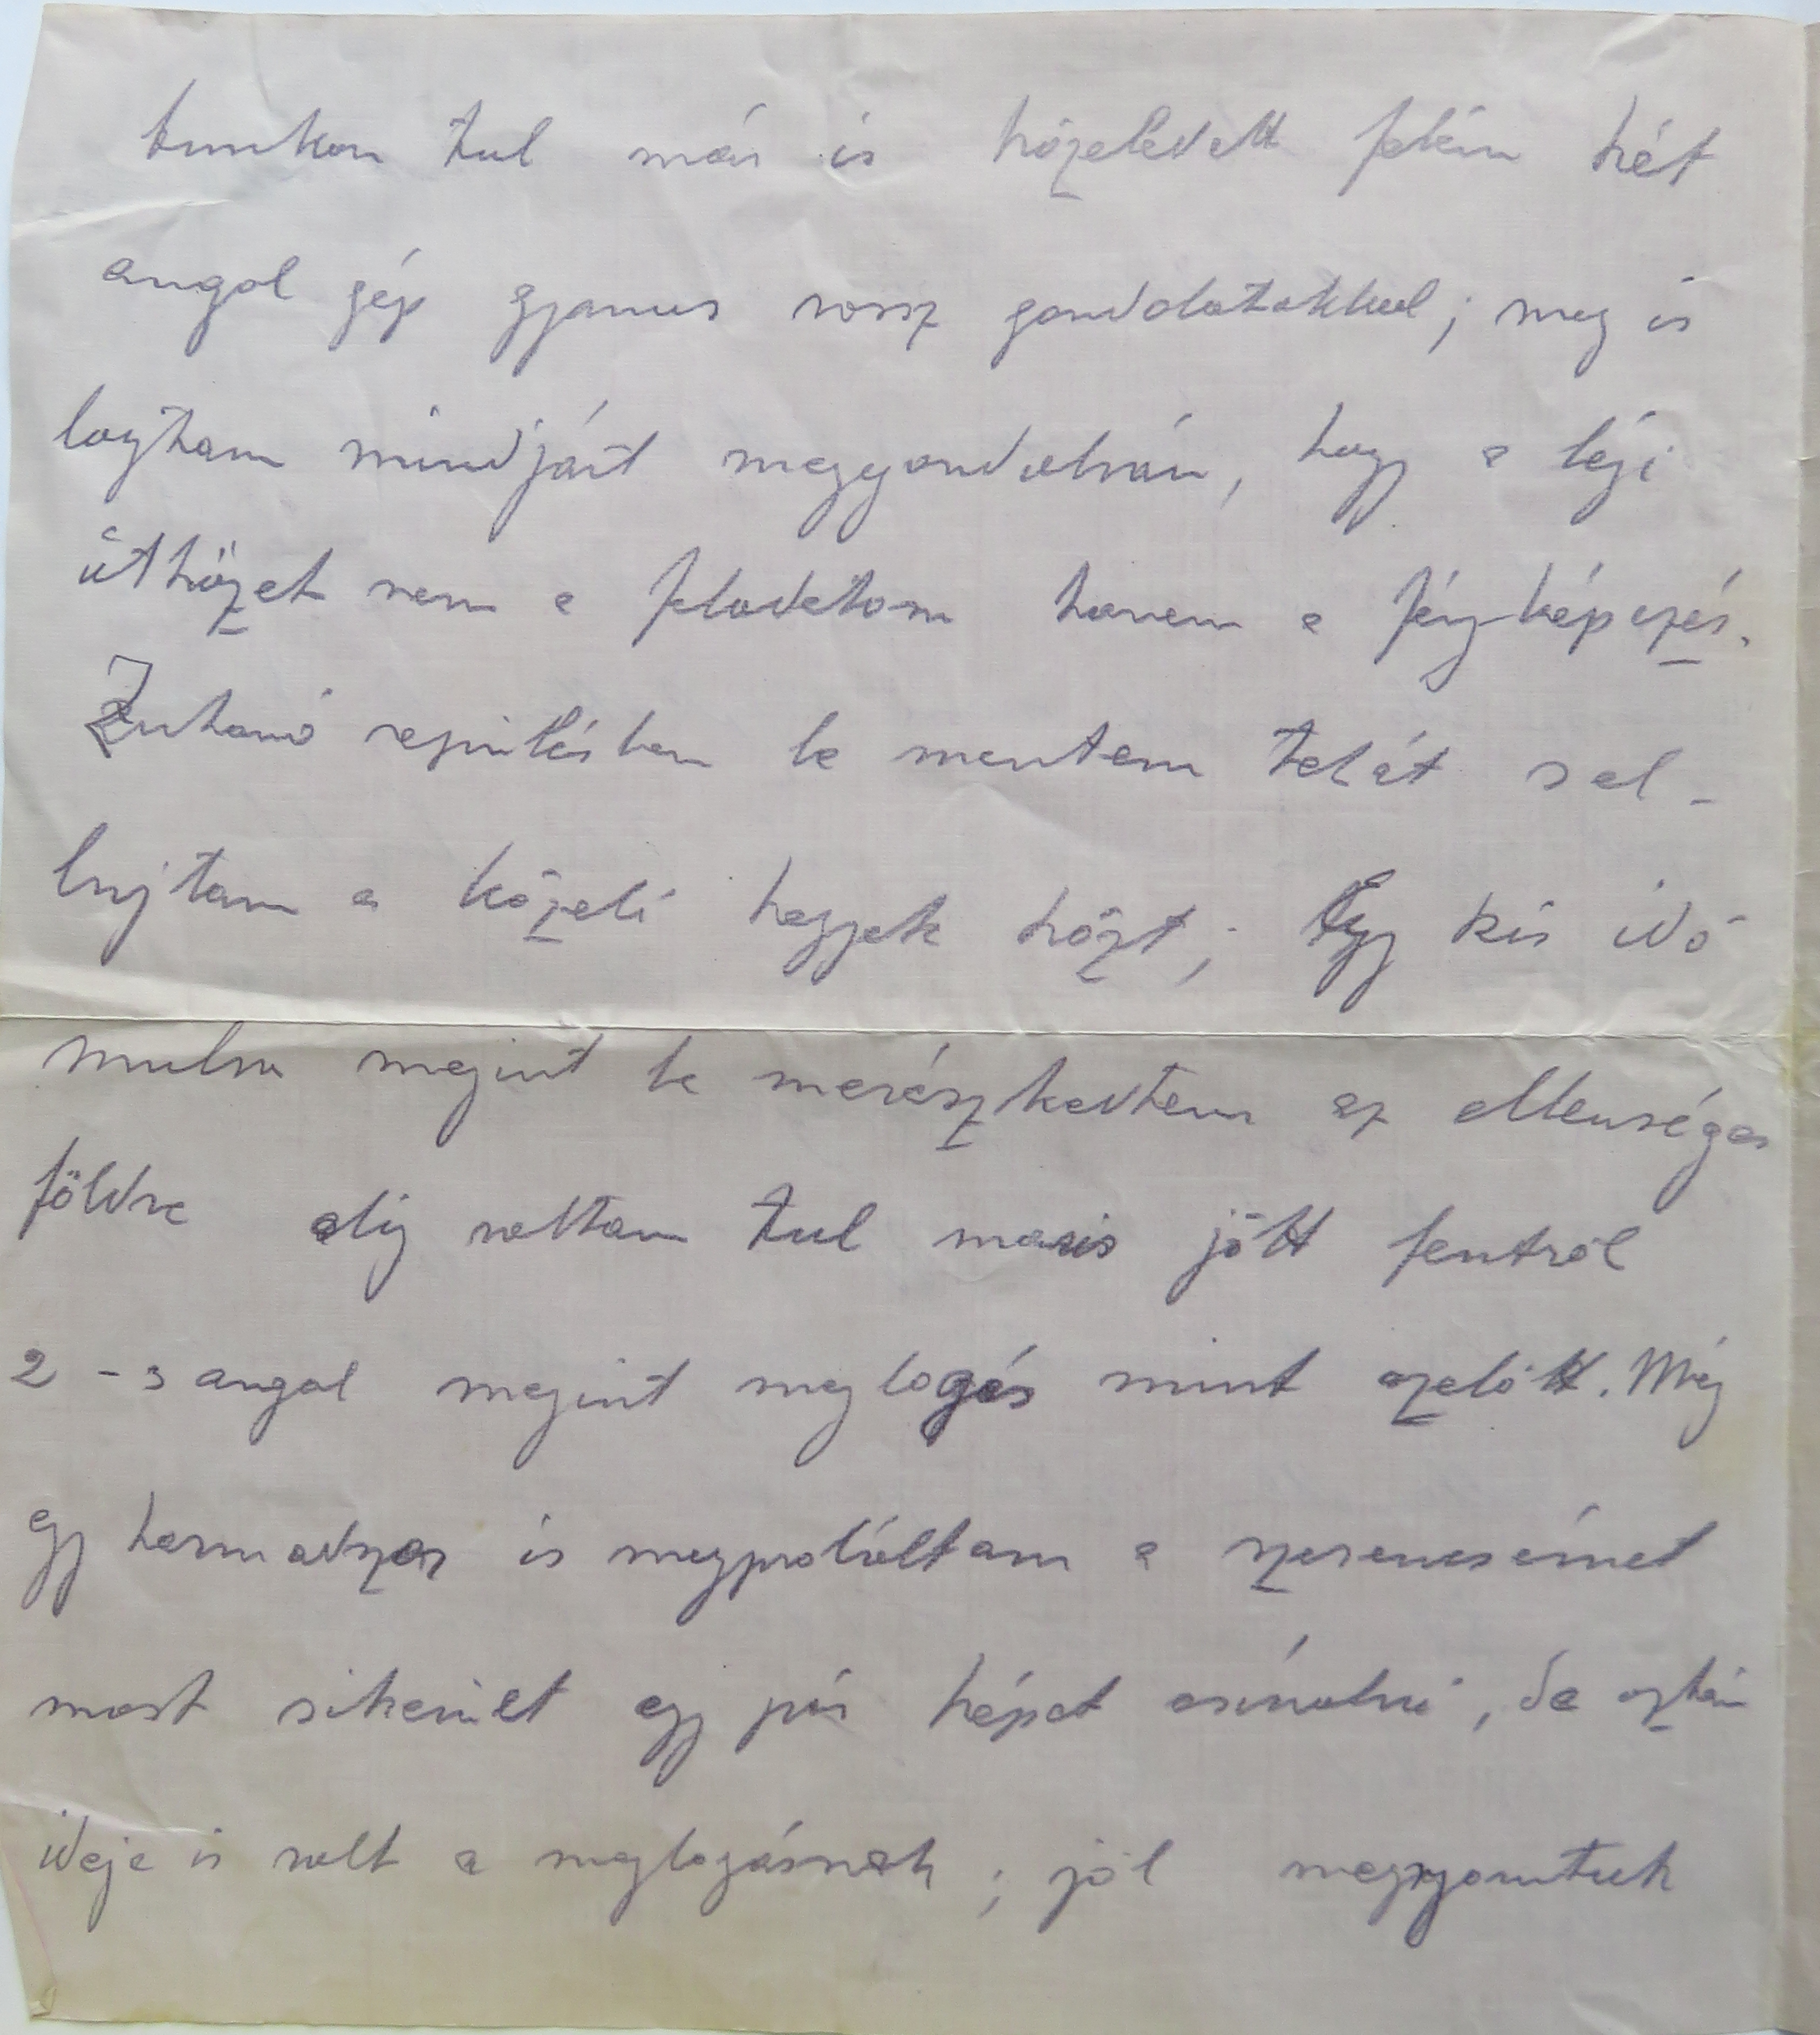 tunkon tul már is közeledett felém hét
angol gép gyanus rossz gondolatokkal; meg is
logtam mindjárt meggondolván, hogy a légi
ütközet nem a feladatom hanem a fényképezés.
Zuhanó repülésben le mentem telát s el-
bujtam a közeli hegyek közt; Egy kis idő
mulva megint be merészkedtem az ellenséges
földre alig voltam tul maris jött fentről
2 - 3 angol megint meglogás mint azelőtt. Még
egy harmadszor is megprobáltam a szerencsémet
most sikerült egy pár képet csinálni, de aztán
ideje is volt a meglogásnak; jól megnyomtuk